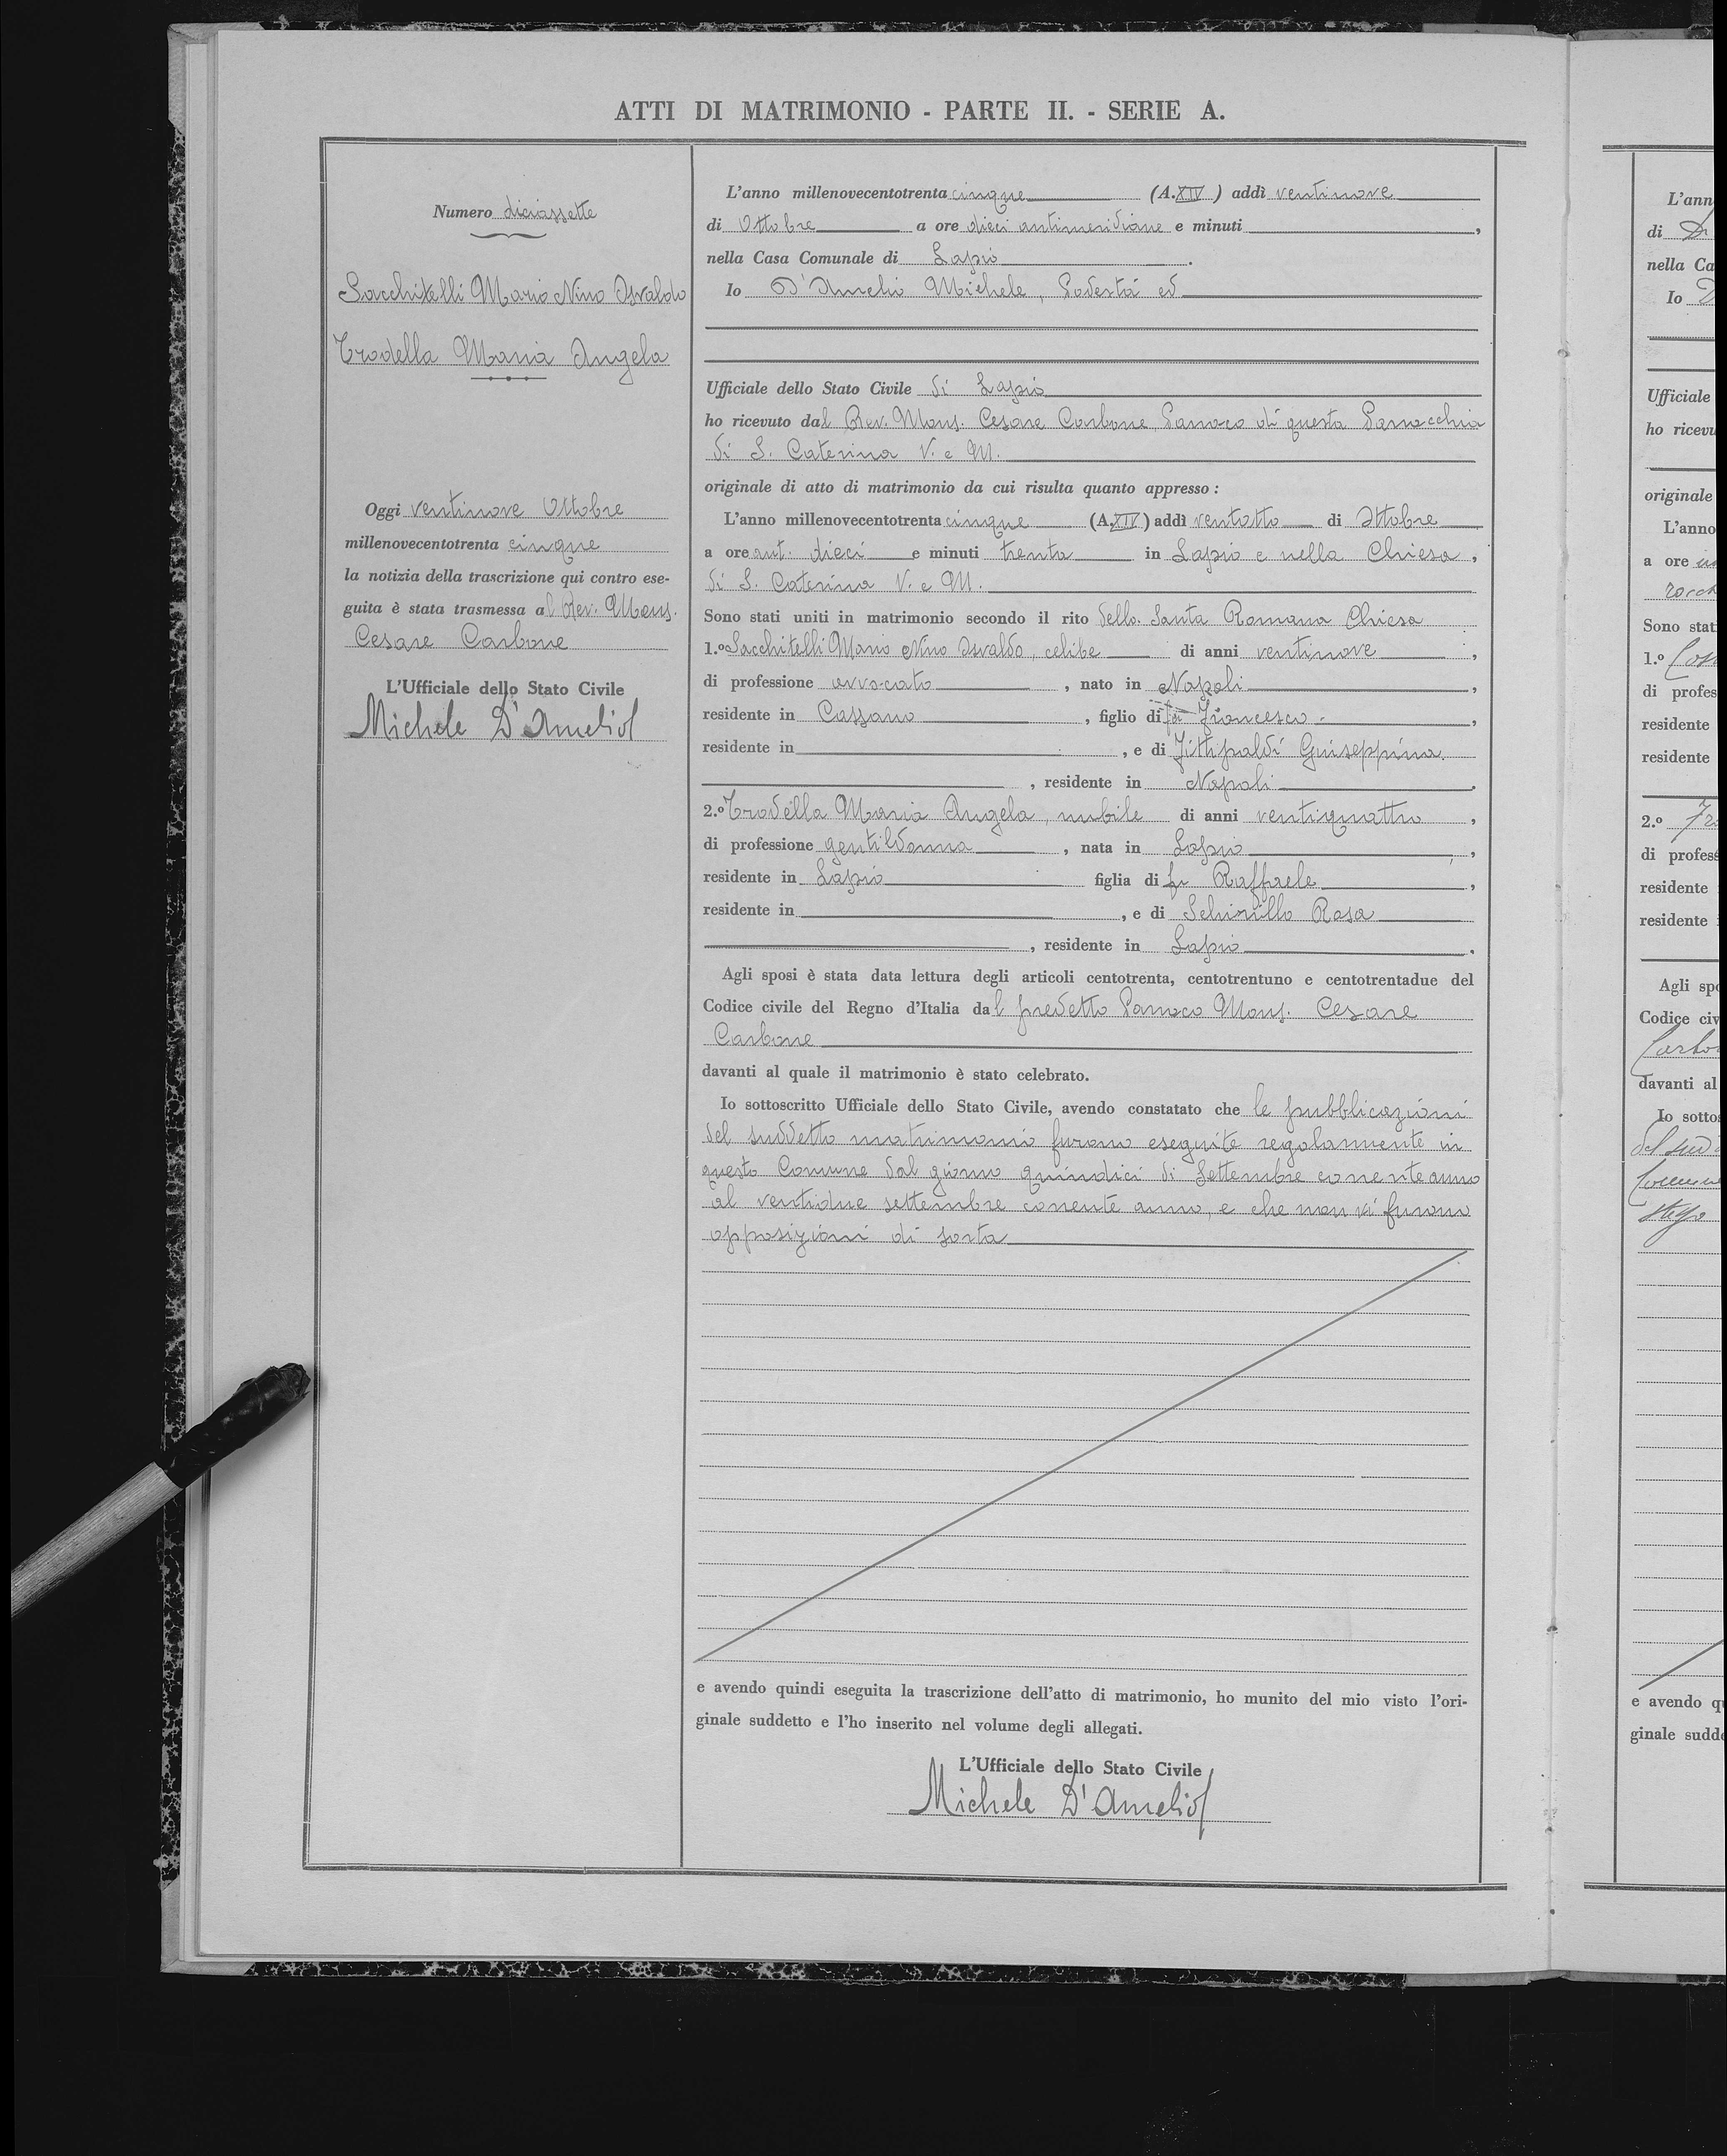 ATTI DI MATRIMONIO - PARTE II. - SERIE A.
Numero diciassette
Sacchitelli Mario Nino Osvaldo
Trodella Maria Angela
Oggi ventinove Ottobre
millenovecentotrenta cinque
la notizia della trascrizione qui contro ese-
guita è stata trasmessa al Rev. Mons.
Cesare Carbone
L'Ufficiale dello Stato Civile
Michele D'Amelio
L'anno millenovecentotrenta cinque (A. XIV) addì ventinove
di Ottobre a ore dieci antimeridiane e minuti ,
nella Casa Comunale di Lapio .
Io D'Amelio Michele, Podestà ed
Ufficiale dello Stato Civile di Lapio
ho ricevuto dal Rev. Mons. Cesare Carbone Parroco di questa Parrocchia
di S. Caterina V. e M.
originale di atto di matrimonio da cui risulta quanto appresso :
L'anno millenovecentotrenta cinque (A. XIV) addì ventotto di Ottobre
a ore ant. dieci e minuti trenta in Lapio e nella Chiesa ,
di S. Caterina V. e M.
Sono stati uniti in matrimonio secondo il rito della Santa Romana Chiesa
1.º Sacchitelli Mario Nino Osvaldo, celibe di anni ventinove ,
di professione avvocato , nato in Napoli ,
residente in Cassano , figlio di fu Francesco ,
residente in , e di Fittipaldi Guiseppina
, residente in Napoli .
2.º Trodella Maria Angela, nubile di anni ventiquattro ,
di professione gentildonna , nata in Lapio ,
residente in Lapio figlia di fu Raffaele ,
residente in , e di Schirillo Rosa
, residente in Lapio .
Agli sposi è stata data lettura degli articoli centotrenta, centotrentuno e centotrentadue del
Codice civile del Regno d'Italia dal predetto Parroco Mons. Cesare
Carbone
davanti al quale il matrimonio è stato celebrato.
Io sottoscritto Ufficiale dello Stato Civile, avendo constatato che le pubblicazioni
del suddetto matrimonio furono eseguite regolarmente in
questo Comune dal giorno quindici di Settembre corrente anno
al ventidue settembre corrente anno, e che non vi furono
opposizioni di sorta
e avendo quindi eseguita la trascrizione dell'atto di matrimonio, ho munito del mio visto l'ori-
ginale suddetto e l'ho inserito nel volume degli allegati.
L'Ufficiale dello Stato Civile
Michele D'Amelio
L'ann
di
nella Ca
Io D
Ufficiale
ho ricevu
originale
L'anno
a ore
Sono stati
1.º
di profes
residente
residente
2.º
di profess
residente
residente
Agli spo
Codice civ
Carbo
davanti al
Io sottos
del sud
Comune
e avendo q
ginale sudd